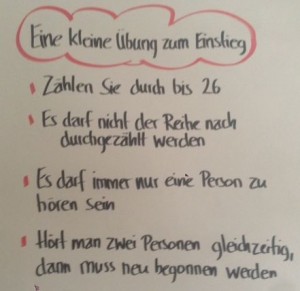 Eine kleine Übung zum Einstieg
Zählen Sie durch bis 26
Es darf nicht der Reihe nach
durchgezählt werden
Es darf immer nur eine Person zu
hören sein
Hört man zwei Personen gleichzeitig,
dann muss neu begonnen werden